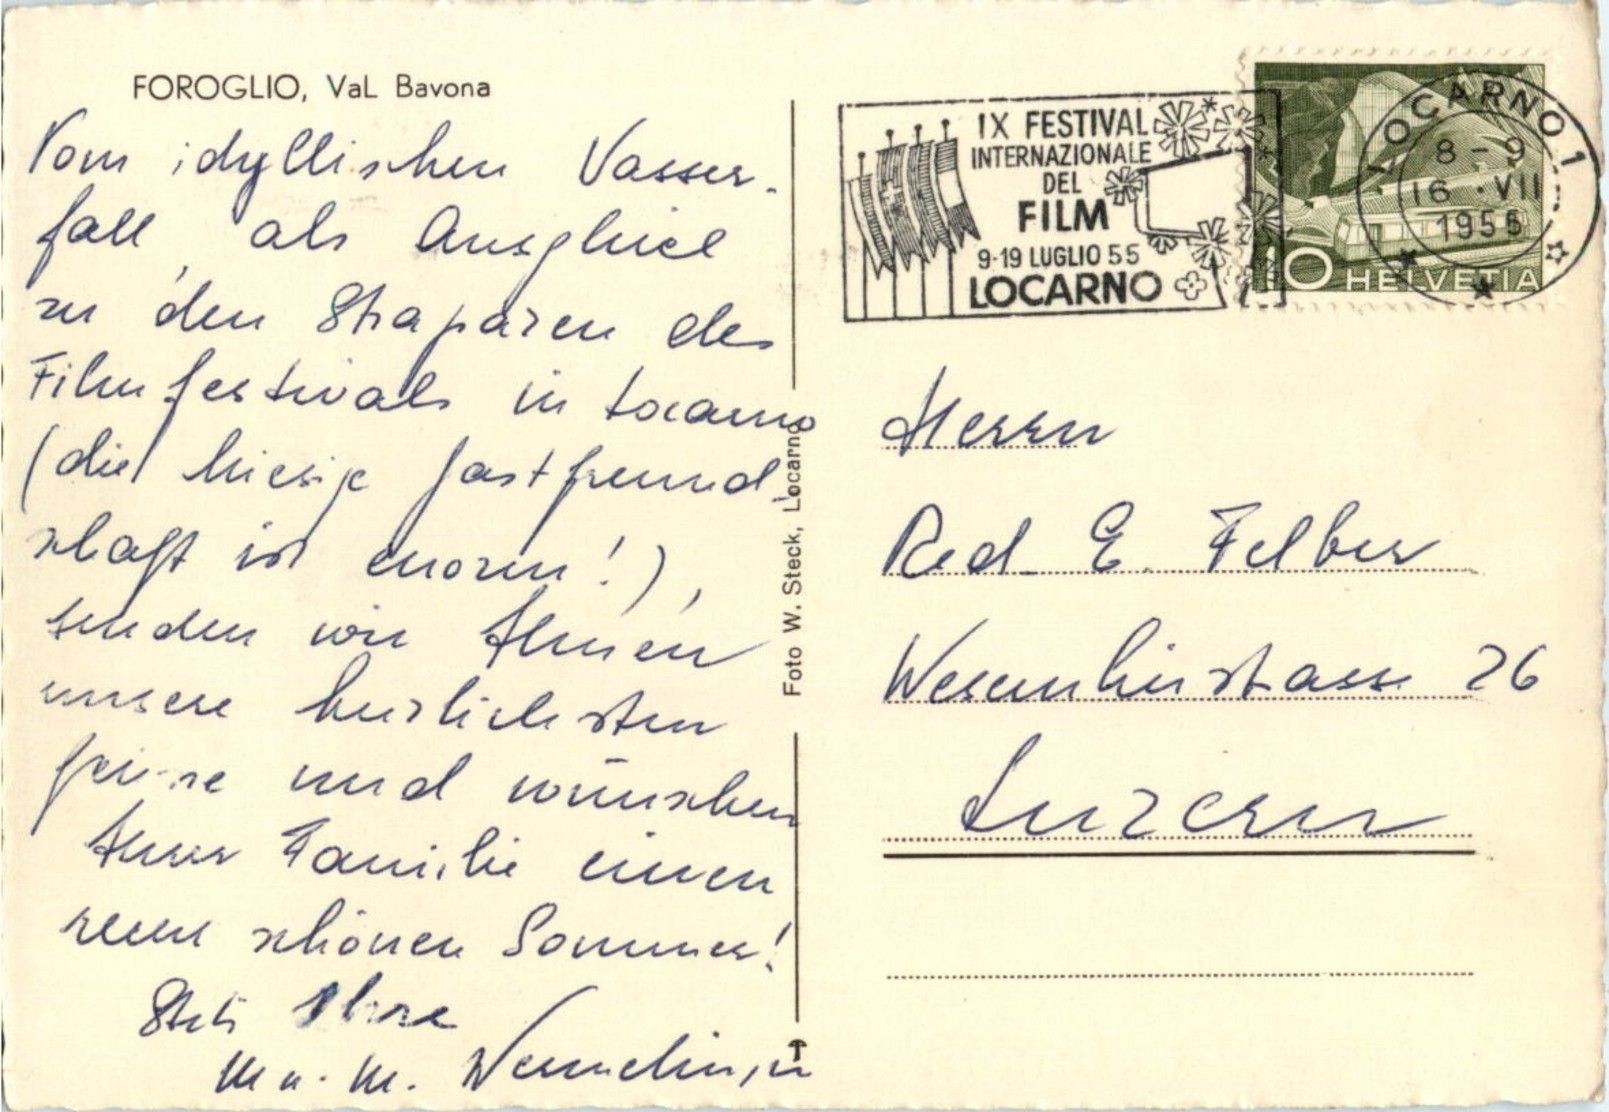 FOROGLIO, Val Bavona
Vom idyllischen Wasser-
fall, als Ausgleich
zu den Strapazen des
Filmfestivals in Locarno
(die hiesige Gastfreund-
schaft ist enorm!),
senden wir Ihnen
unsere herzlichsten
Grüsse und wünschen
Ihrer Familie einen
recht schönen Sommer!
Stets Ihre
M u. M.
Foto W. Steck, Locarno
IX FESTIVAL
INTERNAZIONALE
DEL
FILM
9-19 LUGLIO 55
LOCARNO
LOCARNO 1
8-9
16.VII
1955
10 HELVETIA
Herrn
Red. E. Felber
Wesemlinstrasse 26
Luzern